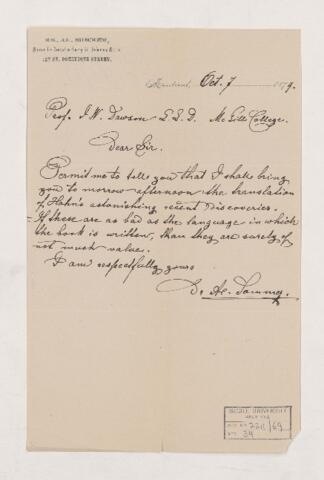 Montreal, Oct. 7 1879.
Prof. J. W. Dawson L.L.D. McGill College.
Dear Sir.
Permit me to tell you that I shall bring
you to morrow afternoon the translation
of Hahn's astonishing recent Discoveries.
If these are as bad as the language in which
the book is written, than they are surely of
not much value.
I am respectfully yours
McGILL UNIVERSITY
ARCHIVES
2211/69
34